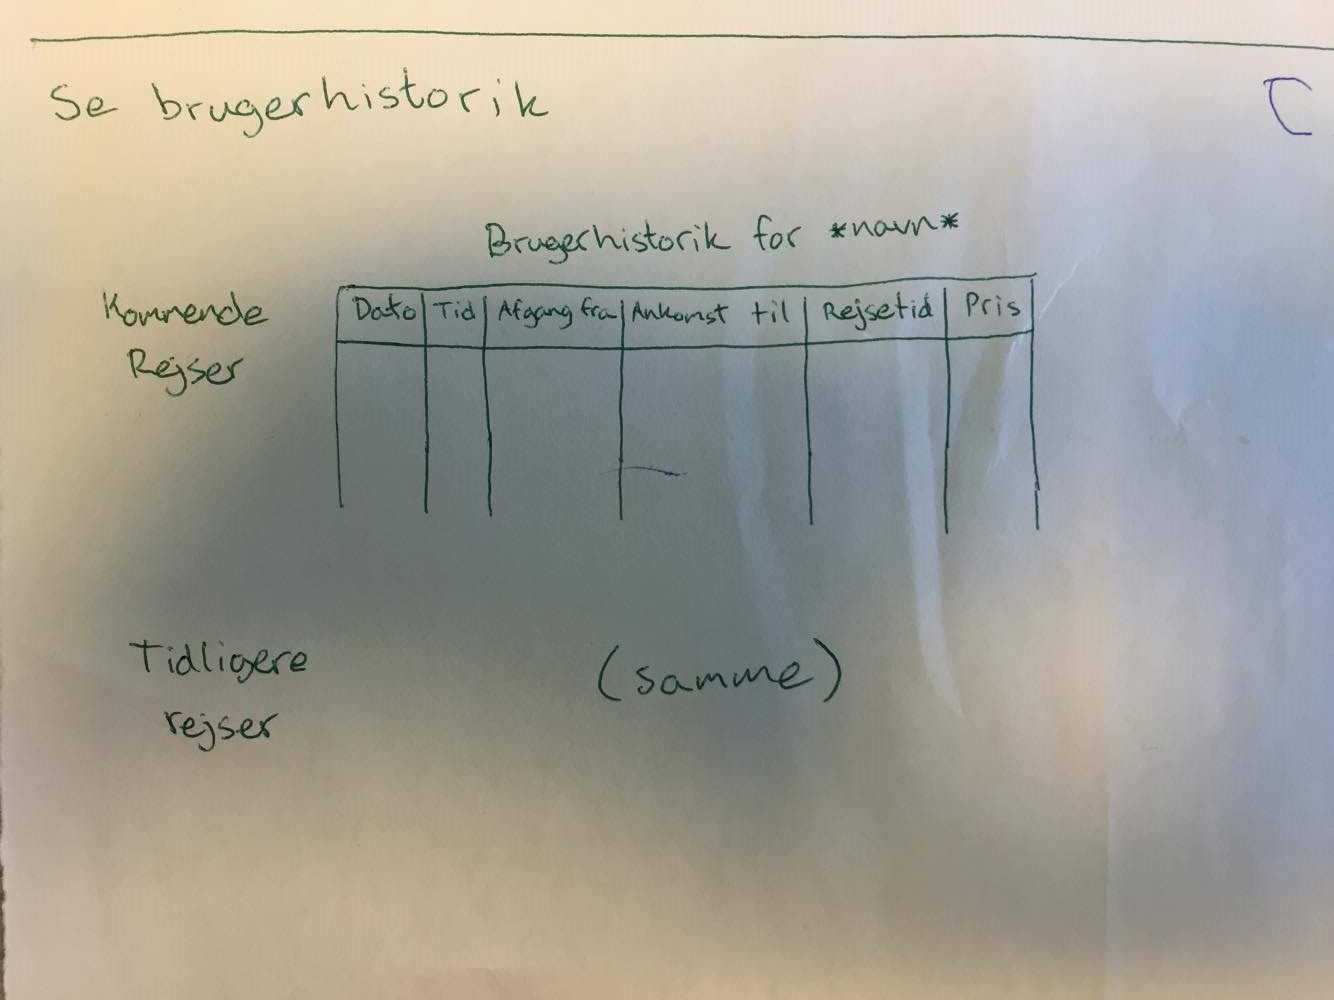 Se brugerhistorik
Brugerhistorik for *navn*
Kommende
Rejser
Dato Tid Afgang fra Ankomst til Rejsetid Pris
Tidligere
rejser
(samme)